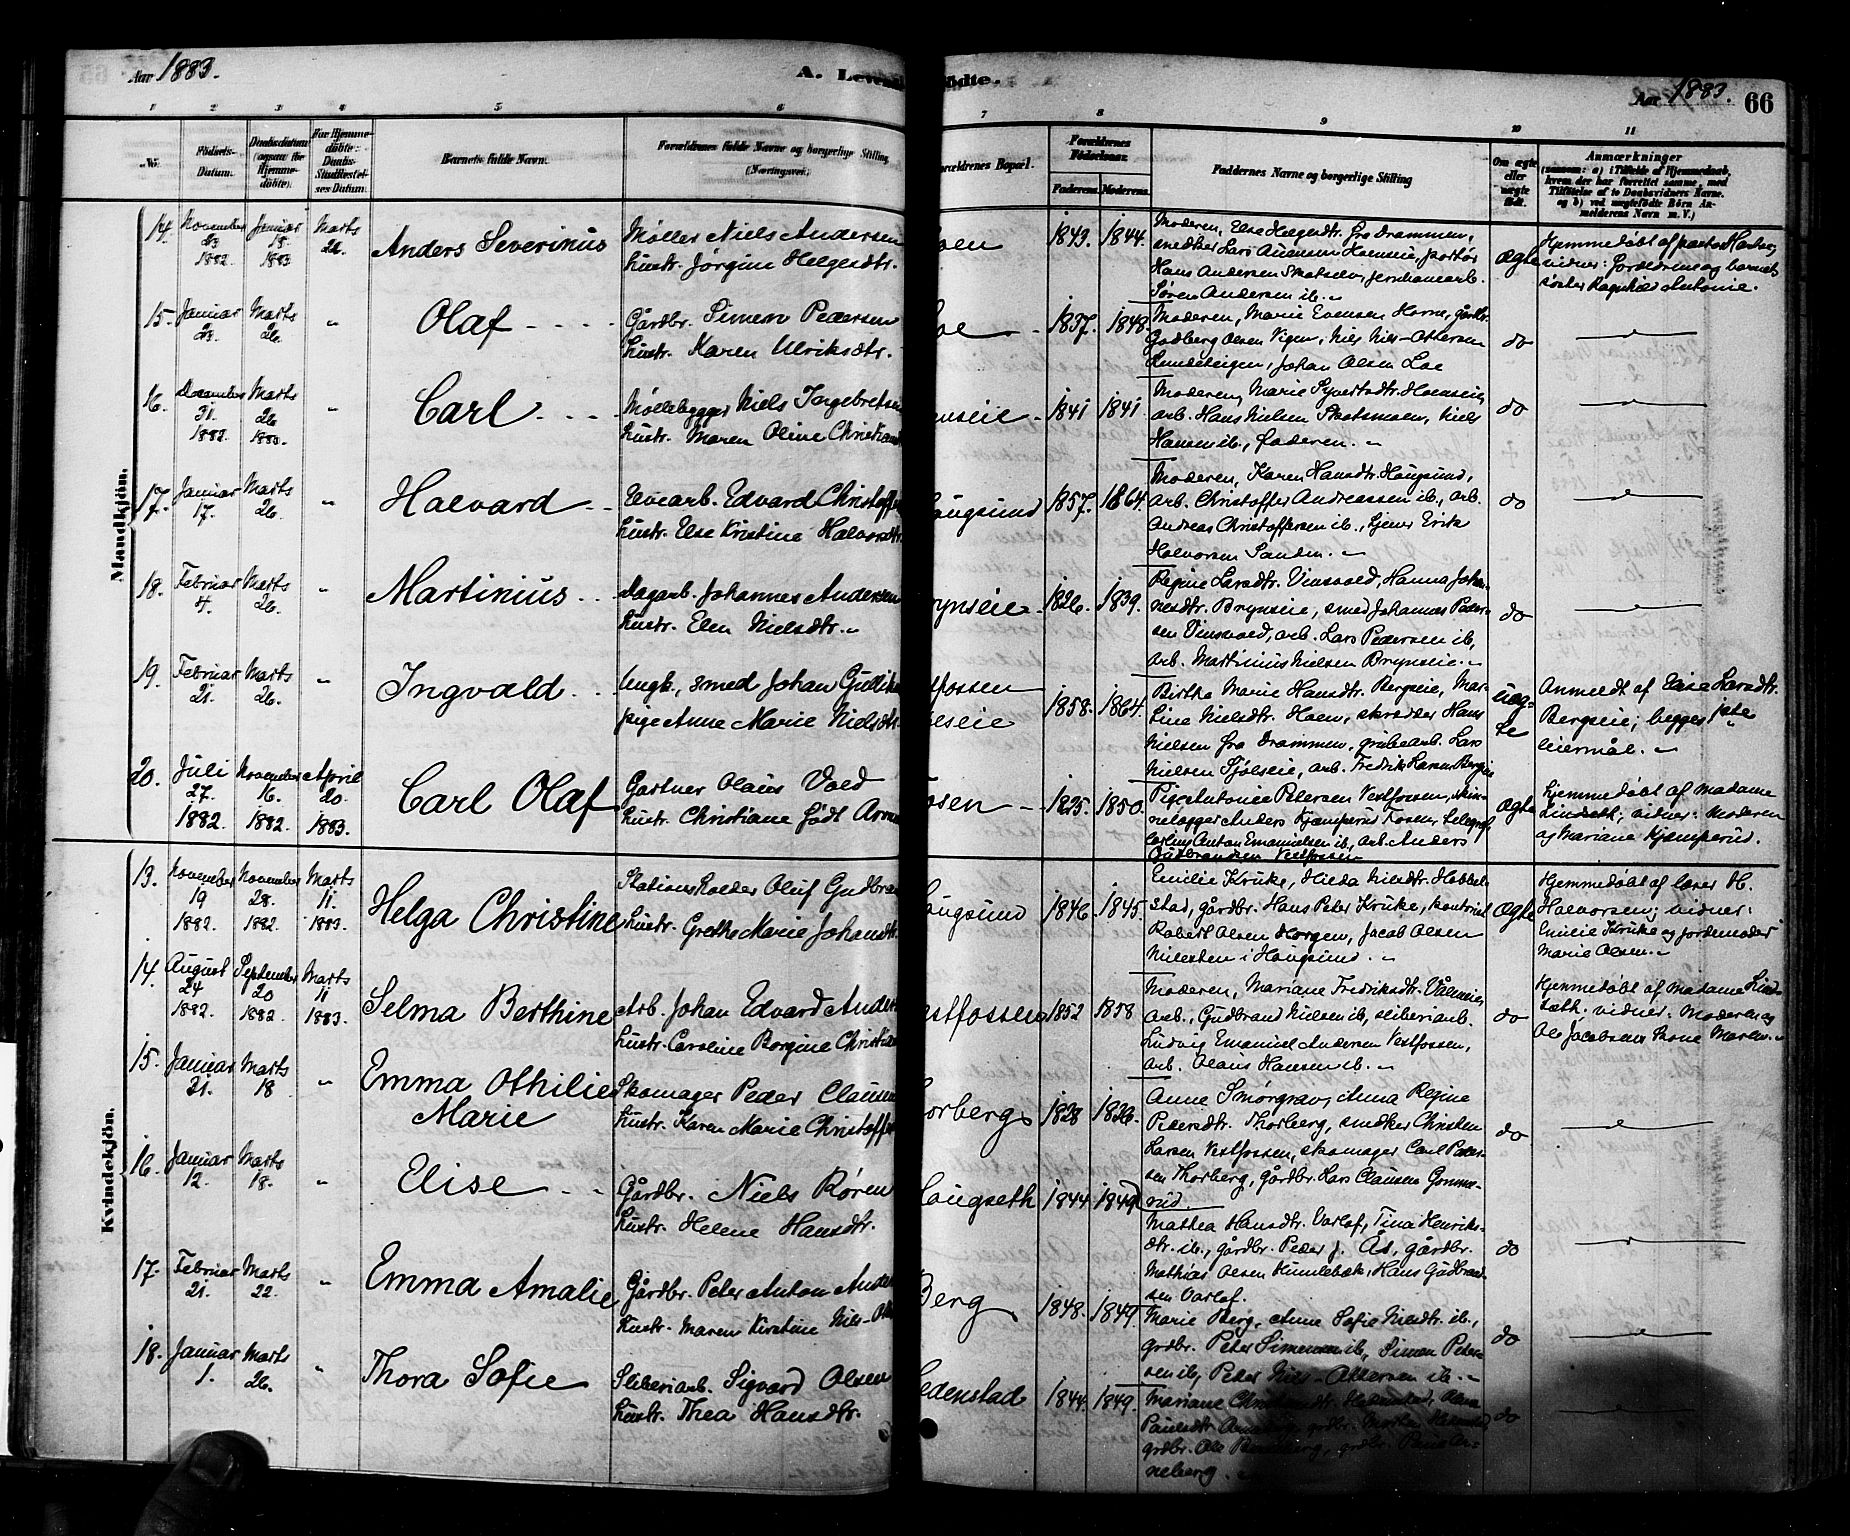 Aar 1883.
A. Levende
födte.
Aar 1883. 66
1 2 3 4 5 6 7 8 9 10 11
No.
Födsels-Datum.
Daabsdatum (ogsaa for Hjemmedöbte).
For Hjemmedöbte: Daabs-Stadfæstelses-Datum.
Barnets fulde Navn.
Forældrenes fulde Navne og borgerlige Stilling (Næringsvei).
Forældrenes Bopæl.
Forældrenes Födselsaar.
Faderens. Moderens.
Faddernes Navne og borgerlige Stilling
Om ægte eller uægte födt.
Anmærkninger
(saasom: a) i Tilfælde af Hjemmedaab, hvem der har forrettet samme, med Tilföielse af to Daabsvidners Navne, og b) ved uægtefödte Börn Anmelderens Navn m. V.)
Mandkjön.
14. November 23 1882 Januar 18 1883 Marts 26.
Anders Severinus
Møller Niels Andersen
hustr. Jørgine Helgesdtr.
oen 1843. 1844.
Moderen, Else Helgesdtr. fra Drammen,
snedker Lars Hoenseie,
Hans Andersen jernbanearb.
Søren Andersen ib.
Ægte
Hjemmedøbt af pastor
vidner: Forældrene og barnets
søster Ragnhild Antonie.
15. Januar 23. Marts 26. "
Olaf
Gårdbr. Simen Pedersen
hustr. Karen Ulriksdtr.
oe 1837. 1848.
Moderen, Marie Evensen Horne, gårdbr.
Gudberg Olsen Vigen, Nils Nils-Ottersen
Johan Olsen Loe
do
16. December 31. 1882. Marts 26 1883. "
Carl
Møllebygger Niels Ingebretsen
hustr. Maren Oline Christians
nseie 1841 1841.
Moderen, Marie Syvertsdtr. Hoenseie,
arb. Hans Nielsen Skotsmoen, Niels
Hansen ib., Faderen.
do
17. Januar 17. Marts 26. "
Halvard
Elvearb. Edvard Christoffer
hustr. Else Kristine Halvorsdtr.
ougsund 1857. 1864.
Moderen, Karen Hansdtr. Hougsund,
arb. Christoffer Andreassen ib., arb.
Andreas Christoffersen ib., tjener Erik
Halvorsen Sanden.
do
18. Februar 4. Marts 26. "
Martinius
Dagarb. Johannes Andersen
hustr. Elen Nielsdtr.
rynseie 1826. 1839.
Regine Larsdtr. Vinsvold, Hanna Johan-
nesdtr. Brynseie, smed Johannes Peder-
sen Vinsvold, arb. Lars Pedersen ib,
arb. Martinius Nielsen Brynseie.
do
19. Februar 21. Marts 26. "
Ingvald
Ungk., smed Johan Gullik
pige Anne Marie Nielsdtr.
tfossen
seie 1858. 1864.
Birthe Marie Hansdtr. Bergseie, Mar-
tine Nielsdtr. Hoen, skrædder Hans
Nielsen fra Drammen, grubearb. Lars
Nielsen arb. Fredrik Larsen
uæg-
te
Anmeldt af Larsdtr.
Bergseie; begges 1ste
leiermål.
20. Juli 27. 1882. November 16. 1882. April 20. 1883.
Carl Olaf
Gartner Olaus Vold
hustr. Christiane født
osen 1825. 1850.
Pige Antonie Petersen Vestfossen,
Anders Kjæmperud Fossen,
Anton Emanuelsen ib, arb. Anders
Gudbrandsen Vestfossen
Ægte
Hjemmedøbt af madame
Lindseth; vidner: Moderen
og Mariane Kjæmperud.
Kvindekjön.
13. November 19 1882. November 28. 1882. Marts 11. 1883.
Helga Christine
Stationsholder Oluf Gudbran
hustr. Grethe Marie Johansdtr
ougsund 1846. 1845.
Emilie Kruke, Hilda Nilsdtr. Hobbel-
stad, gårdbr. Hans Peter Kruke, kontorist
Robert Olsen Horgen, Jacob Olsen
i Hougsund.
Ægte
Hjemmedøbt af lærer H.
Halvorsen; vidner:
Emilie Kruke og jordemoder
Marie Olsen.
14. August 24 1882. September 20 1882. Marts 11 1883.
Selma Berthine
Arb. Johan Edvard Ander
hustr. Caroline Borgine Christian
estfossen 1852 1858
Moderen, Mariane Fredriksdtr.
arb., Gudbrand Nielsen ib, sliberiarb.
Ludvig Emanuel Andersen Vestfossen,
arb. Olaus Hansen ib.
do
Hjemmedøbt af Madame Lind-
seth. vidner: Moderen og
Ole Jacobsens Kone Maren.
15. Januar 21. Marts 18 "
Emma Othilie
Marie
Skomager Peder Clausen
hustr. Karen Marie Christoffer
orberg 1828 1826.
Anne Smørgrav, Anna Regine
Pedersdtr. Thorberg, snedker Christen
Larsen Vestfossen, skomager Carl Peder-
sen Thorberg, gårdbr. Lars Clausen Gomme-
rud.
do
16. Januar 12. Marts 18. "
Elise
Gårdbr. Niels Køren
hustr. Helene Hansdtr.
ougseth 1844. 1849
Mathea Hansdtr. Varlof, Tina Henriks-
dtr. ib., gårdbr. Peder J. Ås, gårdbr.
Mathias Olsen Humlebæk, Hans Gudbrand-
sen Varlof.
do
17. Februar 21. Marts 22. "
Emma Amalie
Gårdbr. Peter Anton Ander
hustr. Maren Kirstine Nils-Ot
Berg 1848. 1849.
Marie Berg, Anne Sofie Nilsdtr ib.,
grdbr. Peter Simensen ib, Simen Peter-
sen ib, Peter Nils-Ottersen ib.
do
18. Januar 1. Marts 26. "
Thora Sofie
Sliberiarb. Sigvard Olsen
hustr. Thea Hansdtr.
edenstad 1844. 1849.
Mariane
Paulsdtr.
grdbr. Ole grdbr.
neberg.
do